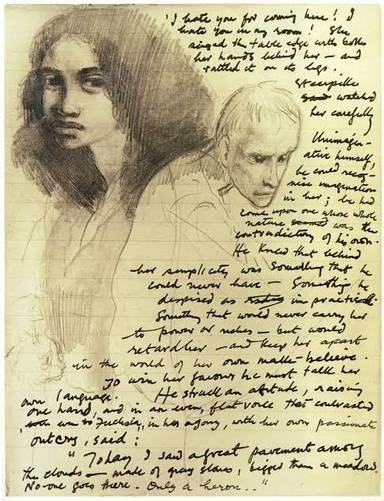 'I hate you for coming here! I
hate you in my room! She
seized the table edge with both
her hands behind her — and
rattled it on its legs.
Steerpike
saw watched
her carefully
Unimagin-
ative himself,
he could recog-
nise imagination
in her; he had
come upon one whose whole
nature seemed was the
contradictory of his own.
He knew that behind
her simplicity was something that he
could never have — Something he
despised as impractical.
Something that would never carry her
to power or riches — but would
retard her — and keep her apart
in the world of her own make-believe.
To win her favour he must talk her
own language. He struck an attitude, raising
one hand, and in an even, flat voice that contrasted
even to Fuchsia, in her agony, with her own passionate
outcry, said:
"Today I saw a great pavement among
the clouds — made of grey stones, bigger than a meadow.
No-one goes there. Only a heron.."